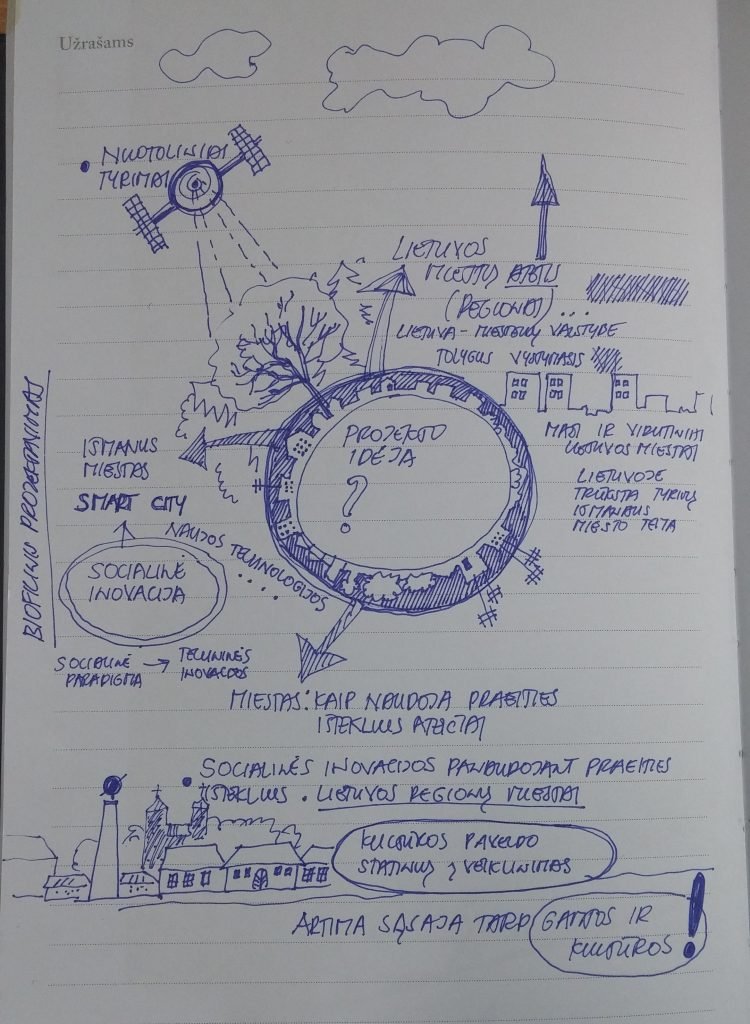 Užrašams
NUOTOLINIAI
TYRIMAI
LIETUVOS
MIESTŲ ATEITIS
(REGIONAI)...
LIETUVA - MIESTELIŲ VALSTYBĖ
TOLYGUS VYSTYMASIS
MAŽI IR VIDUTINIAI
LIETUVOS MIESTAI
LIETUVOJE
TRŪKSTA TYRIMŲ
IŠMANAUS
MIESTO TEMA
PROJEKTO
IDĖJA
?
IŠMANUS
MIESTAS
SMART CITY
NAUJOS TECHNOLOGIJOS
....
SOCIALINĖ
INOVACIJA
BIOFILINIS PROJEKTAVIMAS
SOCIALINĖ → TECHNINĖS
PARADIGMA INOVACIJOS
MIESTAS: KAIP NAUDOJA PRAEITIES
IŠTEKLIUS ATEIČIAI
SOCIALINĖS INOVACIJOS PANAUDOJANT PRAEITIES
IŠTEKLIUS. LIETUVOS REGIONŲ MIESTAI
KULTŪROS PAVELDO
STATINIŲ ĮVEIKLINIMAS
ARTIMA SĄSAJA TARP GAMTOS IR
KULTŪROS !